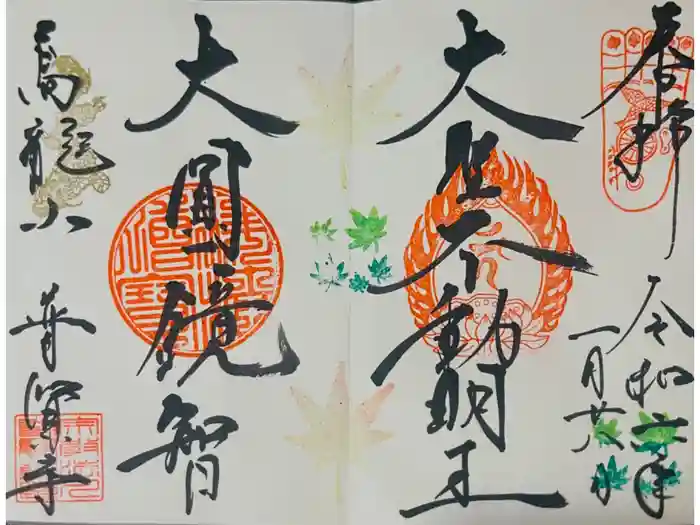 奉拝
令和六年
一月廿八日
大聖不動明王
大圓鏡智
普賢寺